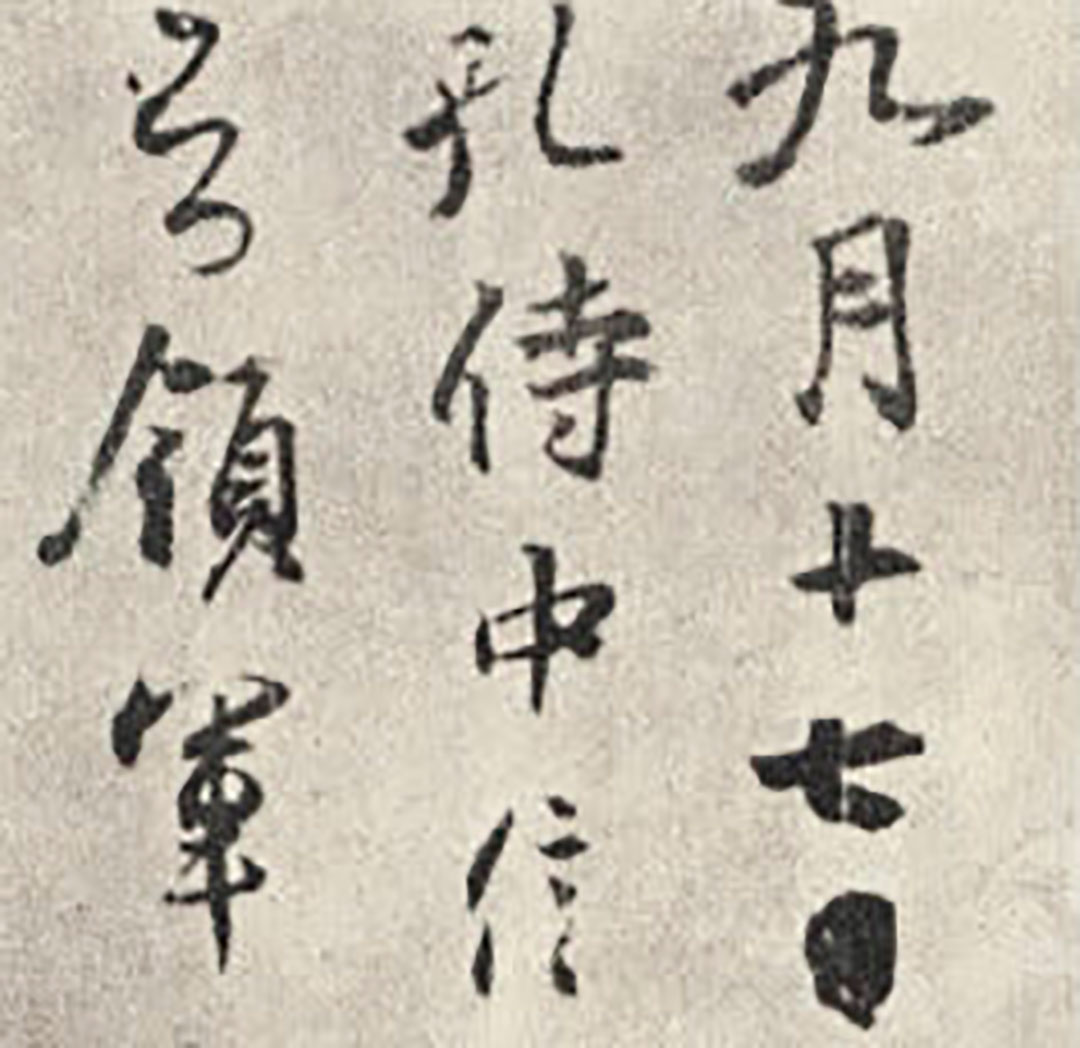 九月十七日
孔侍中信
領軍